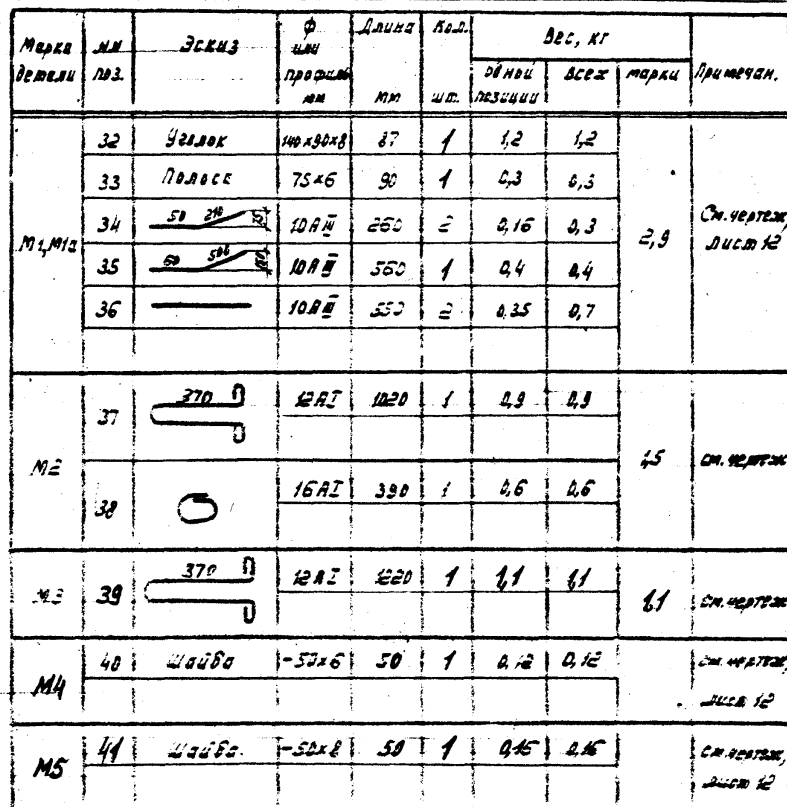 Марка детали | мм поз. | Эскиз | ф или профиль мм | Длина мм | Кол. шт. | Вес, кг: одной позиции | всех | марки | Примечан.
М1, М1а | 32 | Уголок | 140x90x8 | 87 | 1 | 1,2 | 1,2 | 2,9 | См. чертеж, лист 12
33 | Полоса | 75x6 | 90 | 1 | 0,3 | 0,3
34 | 50 210 | 10АIII | 260 | 2 | 0,16 | 0,3
35 | 60 500 | 10АIII | 560 | 1 | 0,4 | 0,4
36 | 10АIII | 550 | 2 | 0,35 | 0,7
М2 | 37 | 370 | 12АI | 1020 | 1 | 0,9 | 0,9 | 1,5 | см. чертеж
38 | 16АI | 390 | 1 | 0,6 | 0,6
М3 | 39 | 370 | 12АI | 1220 | 1 | 1,1 | 1,1 | 1,1 | см. чертеж
М4 | 40 | шайба | -50x6 | 50 | 1 | 0,12 | 0,12 | см. чертеж, лист 12
М5 | 41 | шайба | -50x8 | 50 | 1 | 0,16 | 0,16 | см. чертеж, лист 12